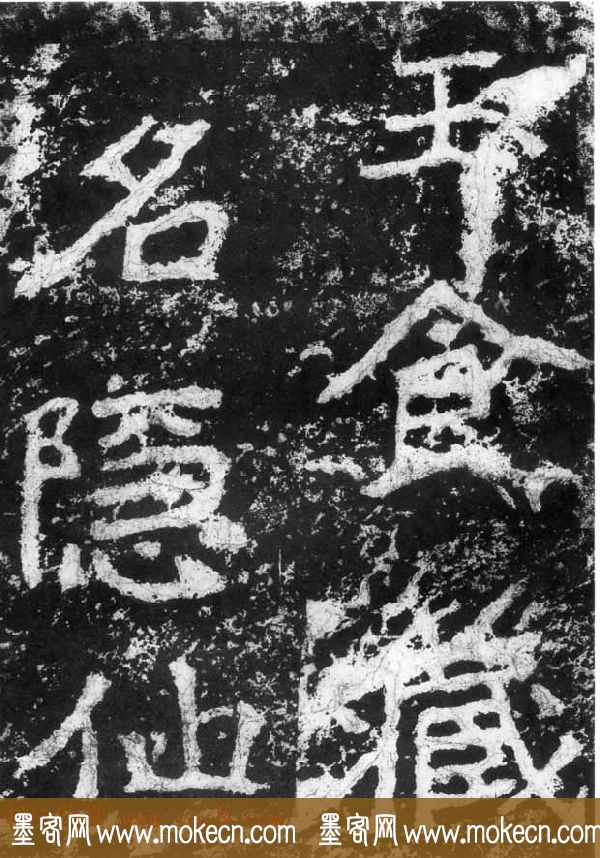 食藏
名隐仙
墨客网www.mokecn.com 墨客网www.mokecn.com